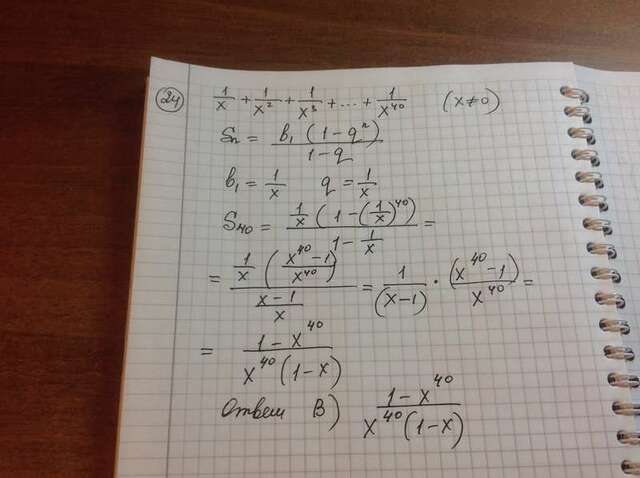 24 1/x + 1/x² + 1/x³ + ... + 1/x⁴⁰ (x≠0)
Sn = b₁(1-qⁿ)/(1-q)
b₁ = 1/x q = 1/x
S₄₀ = (1/x (1-(1/x)⁴⁰))/(1-1/x) =
= (1/x ((x⁴⁰-1)/x⁴⁰))/((x-1)/x) = 1/(x-1) · (x⁴⁰-1)/x⁴⁰ =
= (1-x⁴⁰)/(x⁴⁰(1-x))
Ответ В) (1-x⁴⁰)/(x⁴⁰(1-x))